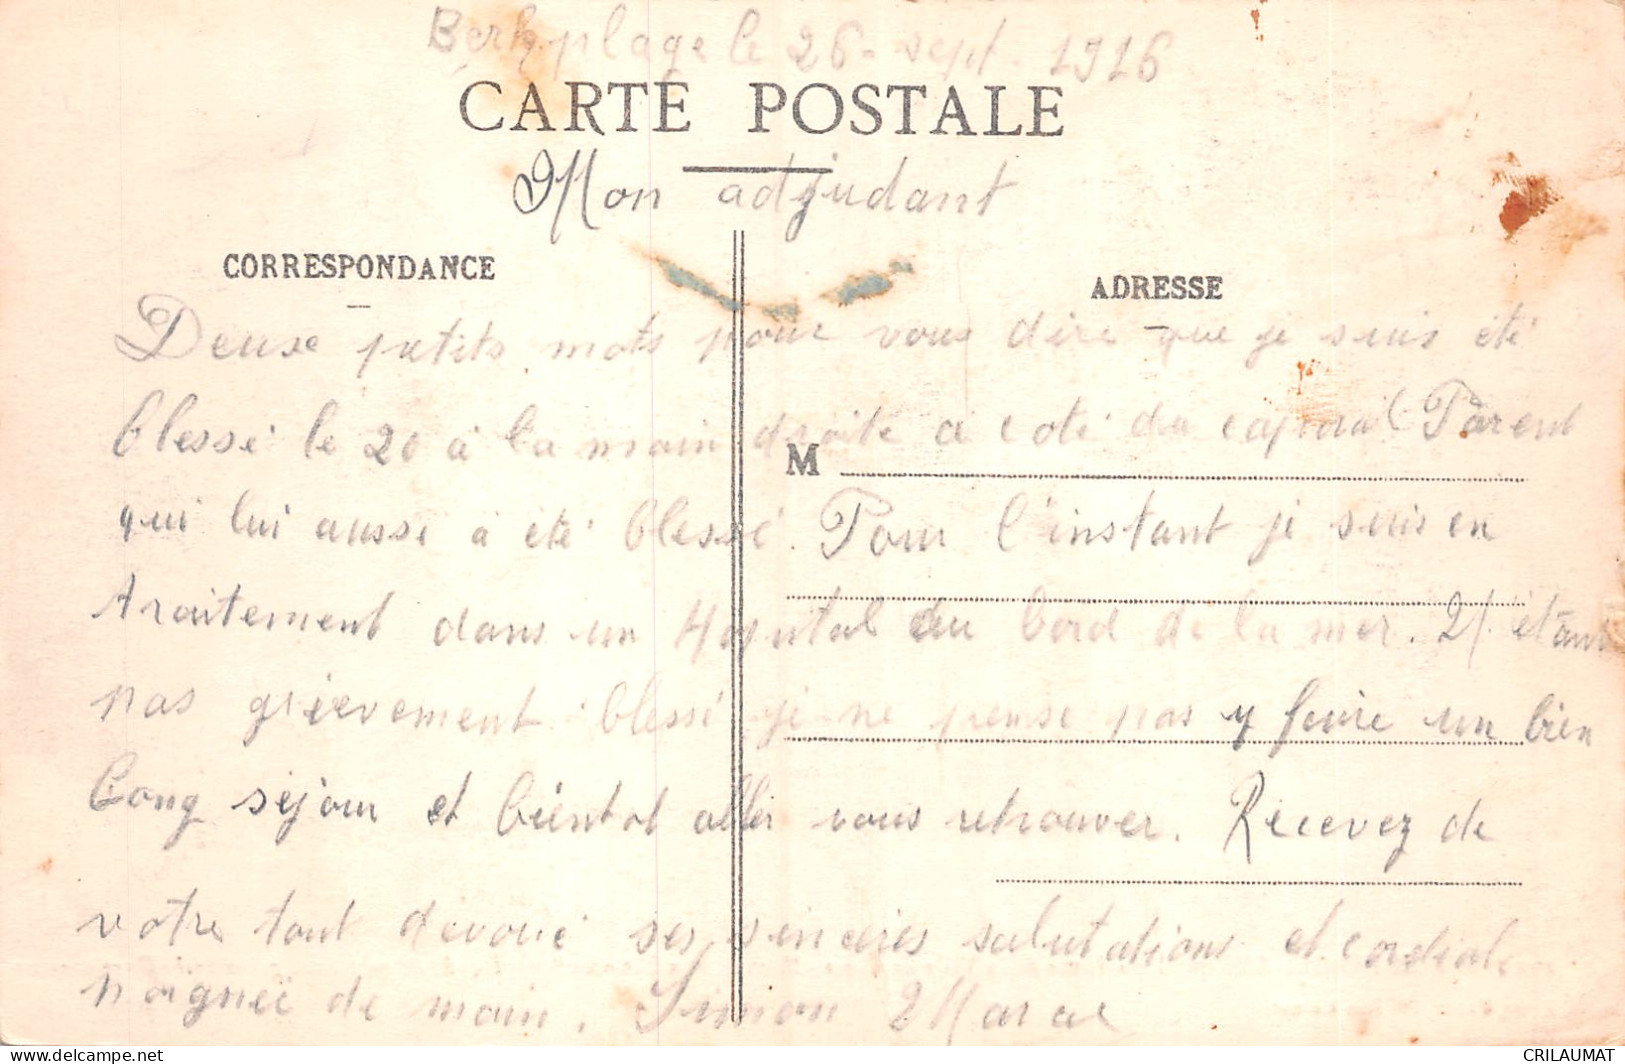 Berk plage le 26 sept. 1916
CARTE POSTALE
Mon adjudant
CORRESPONDANCE
ADRESSE
Deuse petits mots pour vous dire que je suis été
blessé le 20 à la main droite a coté du caporal Parent
M
qui lui aussi à été blessé. Pour l'instant je suis en
traitement dans un Hopital au bord de la mer. N'étant
pas grièevement blessé je ne pense pas y faire un bien
long séjour et bientot aller vous retrouver. Recevez de
votre tout devoué ses sinceres salutations et cordiale
poignée de main. Simon
CRILAUMAT